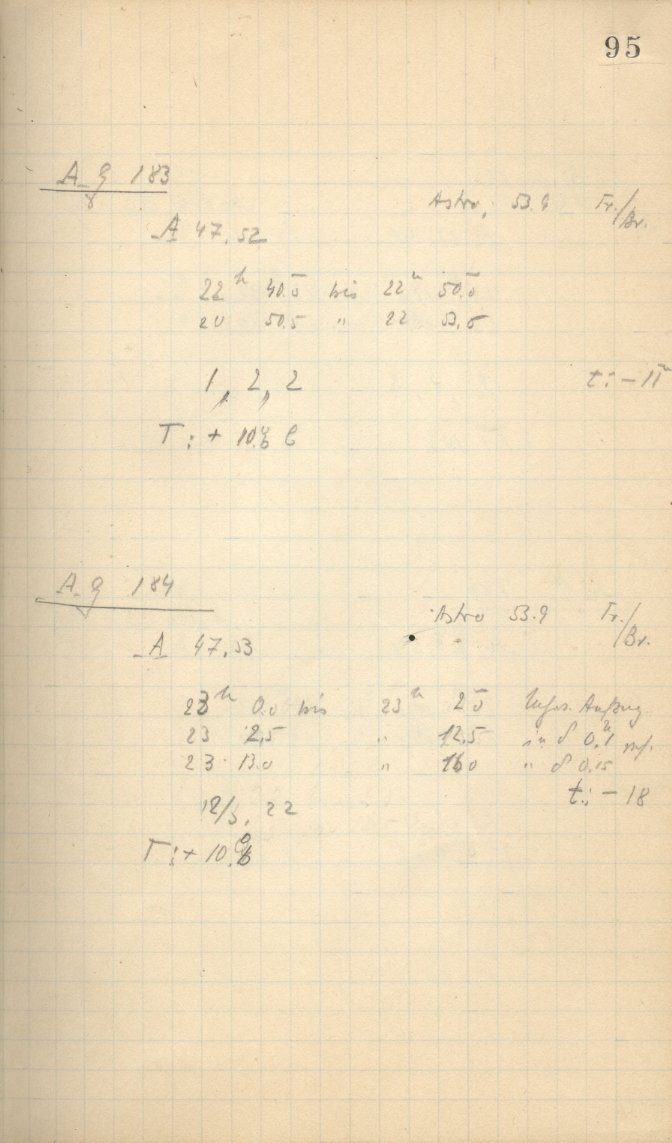 95
A g 183
Astro, 53.9 Tr./Br.
A 47.52
22h 40.0 bis 22h 50.0
20 50.5 " 22 53.5
1, 2, 2
t: - 11
T: + 10.8 C
A g 184
Astro 53.9 Tr./Br.
A 47.53
23h 0.0 bis 23h 2.0
23 2.5 " 12.5 in δ 0.1
23 13.0 " 16.0 " δ 0.15
t: - 18
12/3, 22
T: + 10.8